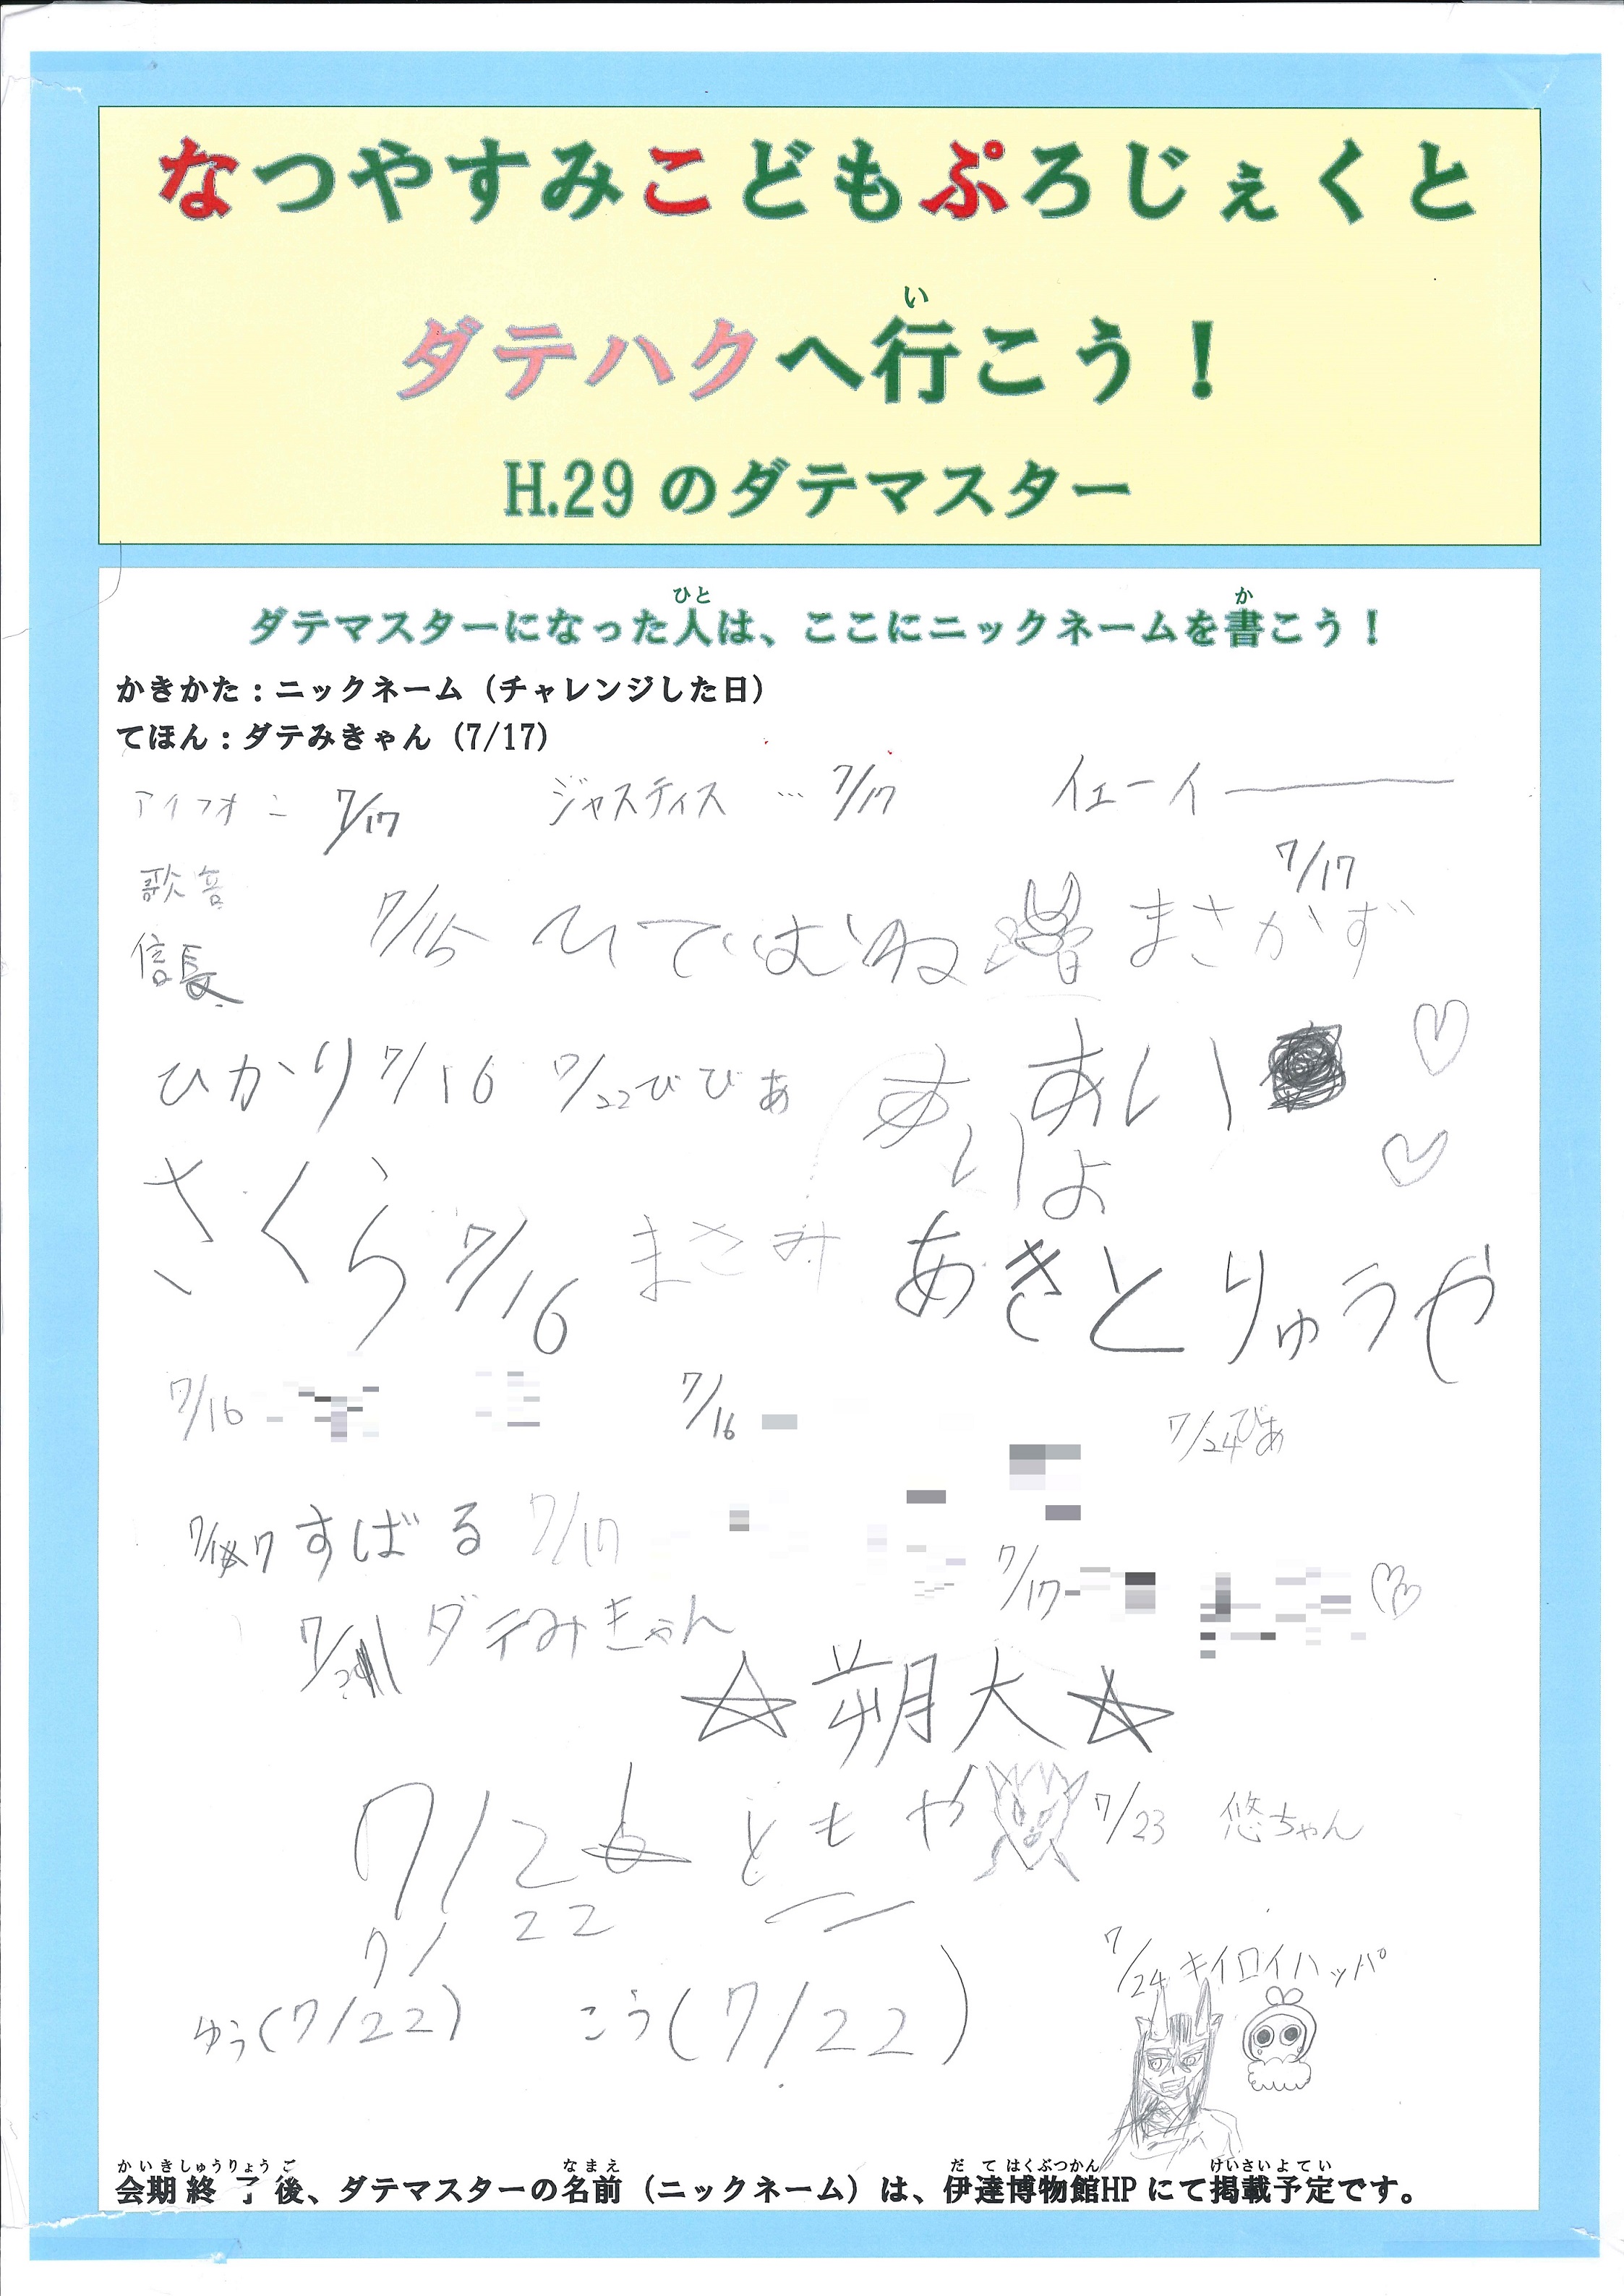 なつやすみこどもぷろじぇくと
ダテハクへ行こう！
い
H.29 のダテマスター
ダテマスターになった人は、ここにニックネームを書こう！
ひと か
かきかた：ニックネーム（チャレンジした日）
てほん：ダテみきゃん（7/17）
アイフォン 7/17 ジャスティス … 7/17 イェーイ―
7/17
歌音
信長 7/15 ひではむね まさかず
ひかり 7/16 7/22 びびあ あい あい
よ
さくら 7/16 まさみ あきと りゅうや
7/16 7/16
7/24 ぴあ
すばる 7/17
7/17
ダテみきゃん
☆朔大☆
ともや 7/23 悠ちゃん
7/22
7/24 キイロイハッパ
ゆう(7/22) こう(7/22)
かいきしゅうりょうご なまえ だてはくぶつかん けいさいよてい
会期終了後、ダテマスターの名前（ニックネーム）は、伊達博物館HPにて掲載予定です。